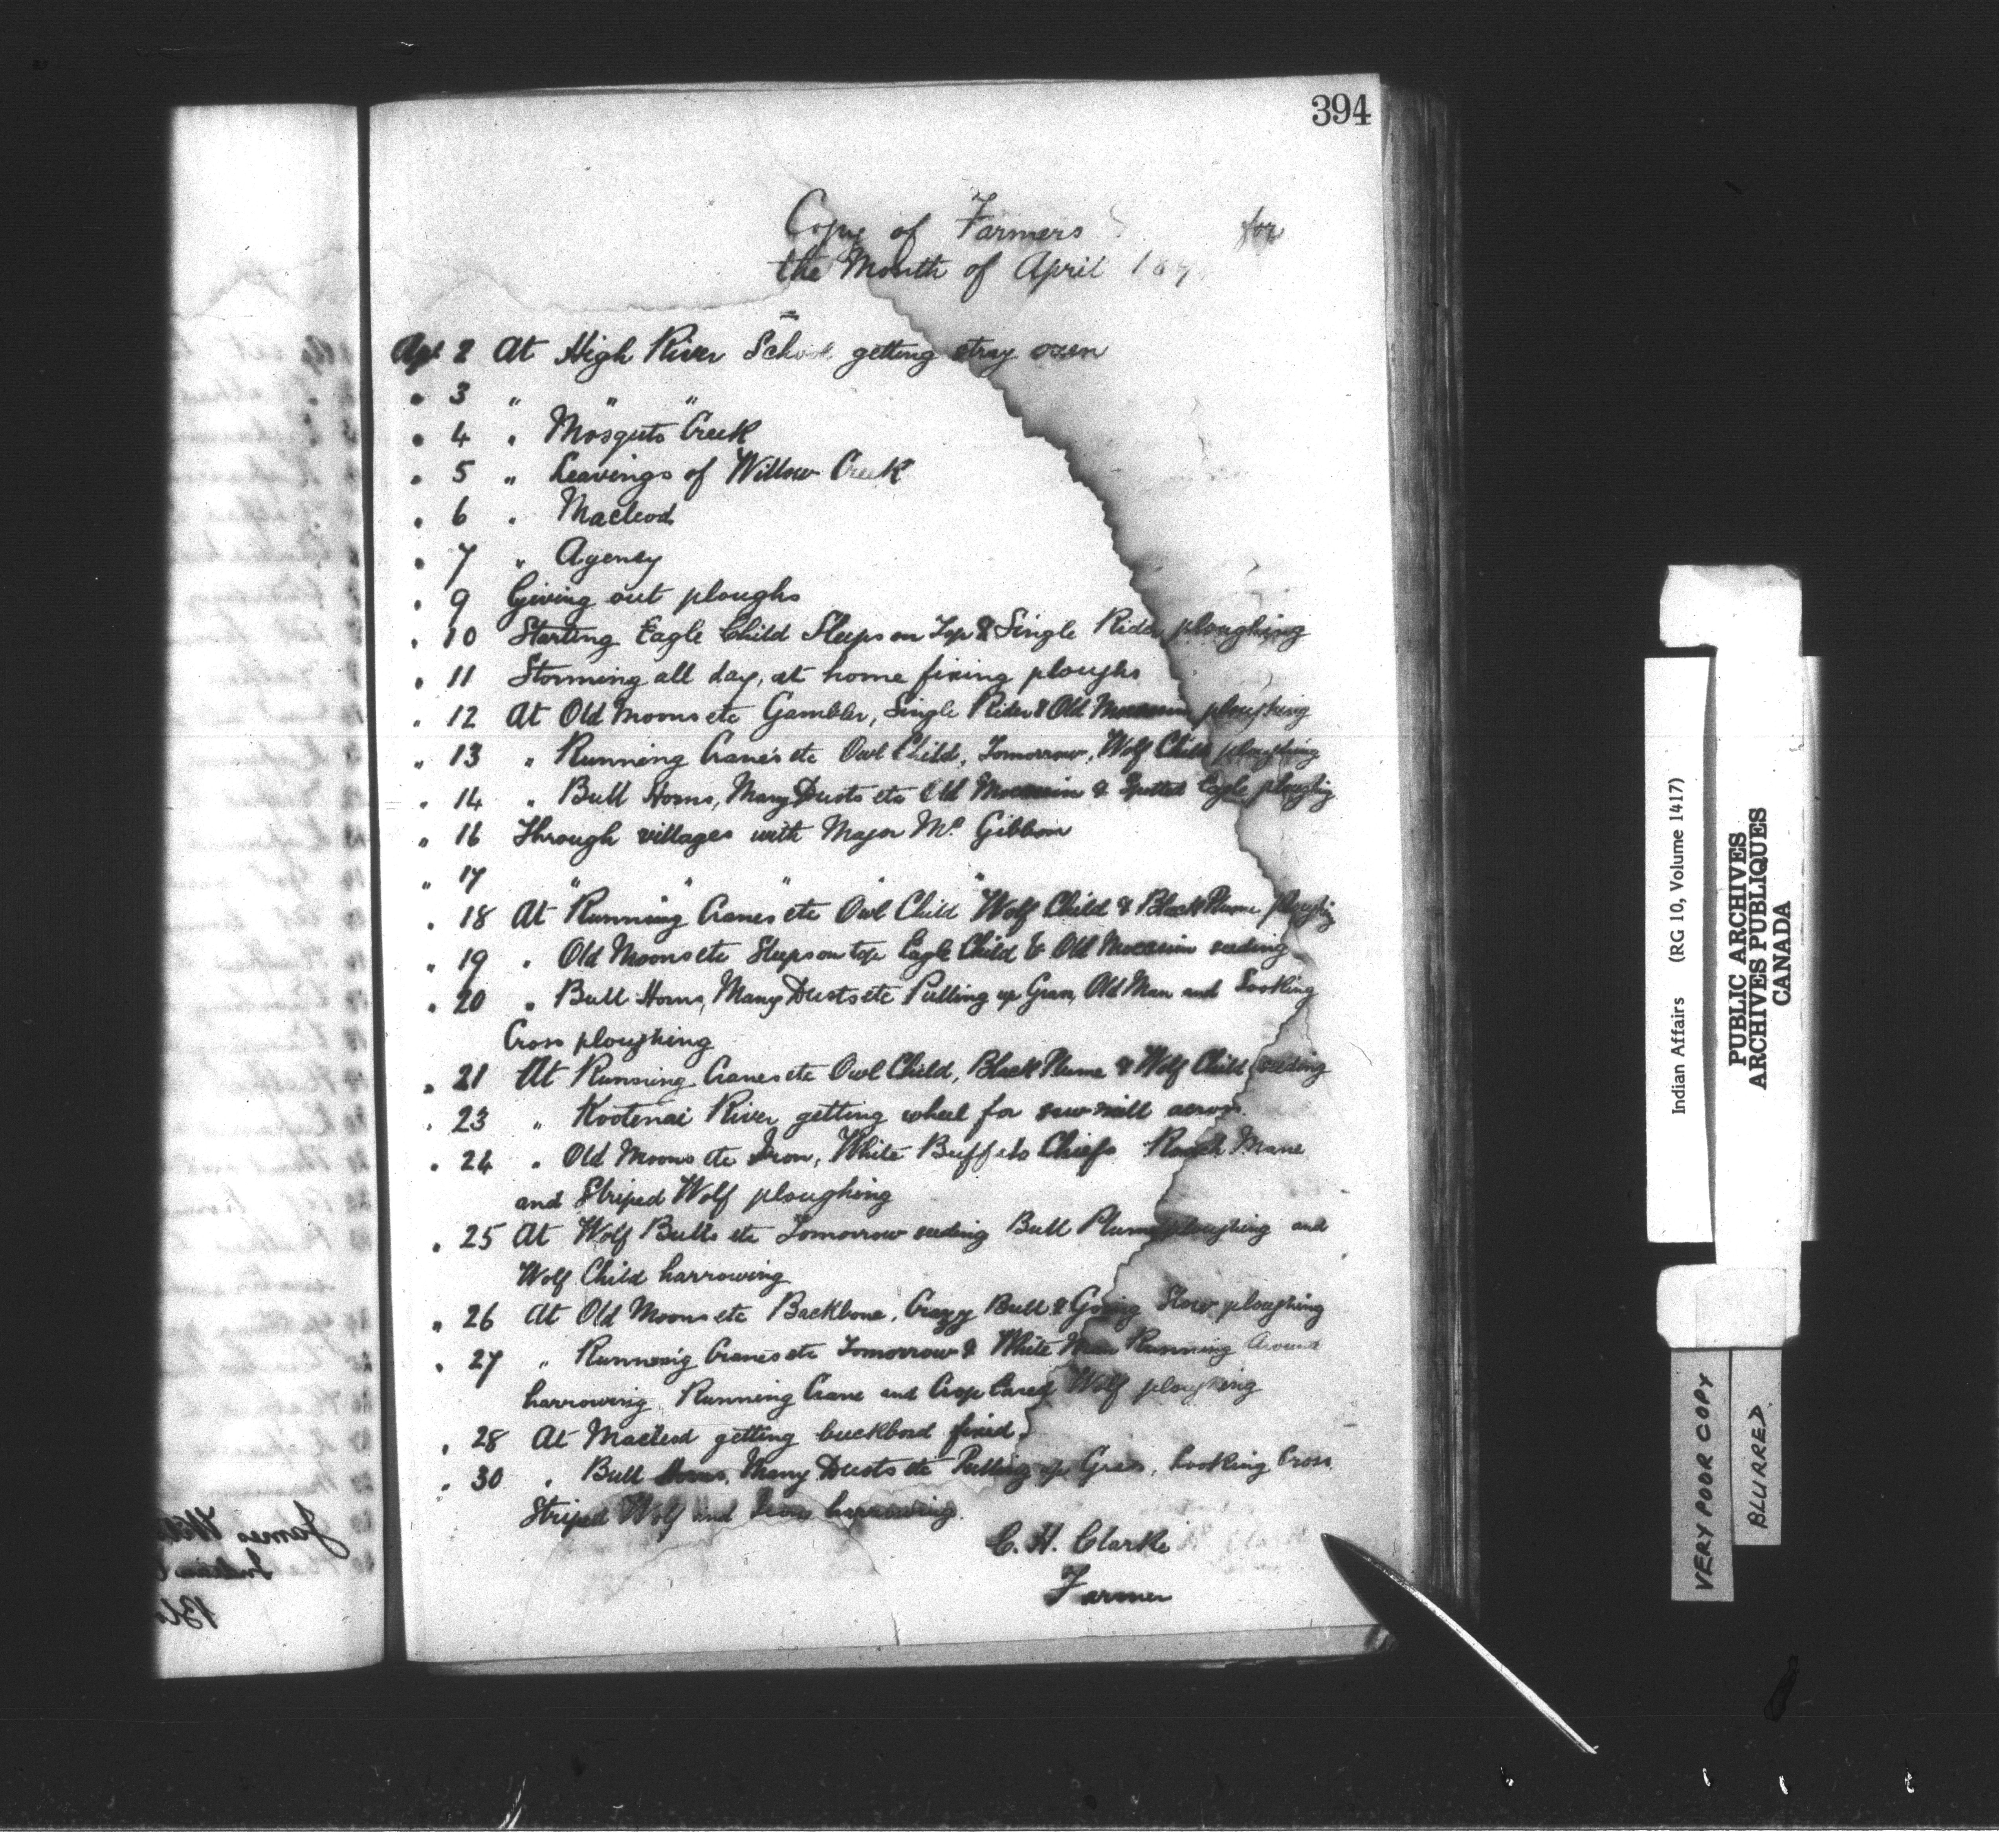 394
Copy of Farmers for
the Month of April 189
Apl 2 At High River School getting stray oxen
" 3 " " "
" 4 " Mosquito Creek
" 5 " Leavings of Willow Creek
" 6 " Macleod
" 7 " Agency
" 9 Giving out ploughs
" 10 Starting Eagle Child Sleeps on Top & Single Rider ploughing
" 11 Storming all day, at home fixing ploughs
" 12 At Old Moons etc Gambler, Single Rider & Old Moccasin ploughing
" 13 " Running Cranes etc Owl Child, Tomorrow, Wolf Child ploughing
" 14 " Bull Horns, Many Dusts etc Old Moccasin & Spotted Eagle ploughing
" 16 Through villages with Major McGibbon
" 17 " " " " "
" 18 At Running Cranes etc Owl Child Wolf Child & Black Plume ploughing
" 19 " Old Moons etc Sleeps on top Eagle Child & Old Moccasin seeding
" 20 " Bull Horns, Many Dusts etc Pulling up Grass, Old Man and Looking
Cross ploughing
" 21 At Running Cranes etc Owl Child, Black Plume & Wolf Child seeding
" 23 " Kootenai River getting wheel for saw mill across.
" 24 " Old Moons etc Iron, White Buffalo Chiefs Roach Mane
and Striped Wolf ploughing
" 25 At Wolf Bulls etc Tomorrow seeding Bull Plume ploughing and
Wolf Child harrowing
" 26 At Old Moons etc Backbone, Crazy Bull & Going Slow ploughing
" 27 " Running Cranes etc Tomorrow & White Man Running Around
harrowing Running Crane and Crop Eared Wolf ploughing
" 28 At Macleod getting buckbord fixed.
" 30 " Bull Horns, Many Dusts etc Pulling up Grass, Looking Cross
Striped Wolf and Iron harrowing.
C. H. Clarke
Farmer
James
Indian
Indian Affairs (RG 10, Volume 1417)
PUBLIC ARCHIVES
ARCHIVES PUBLIQUES
CANADA
VERY POOR COPY
BLURRED